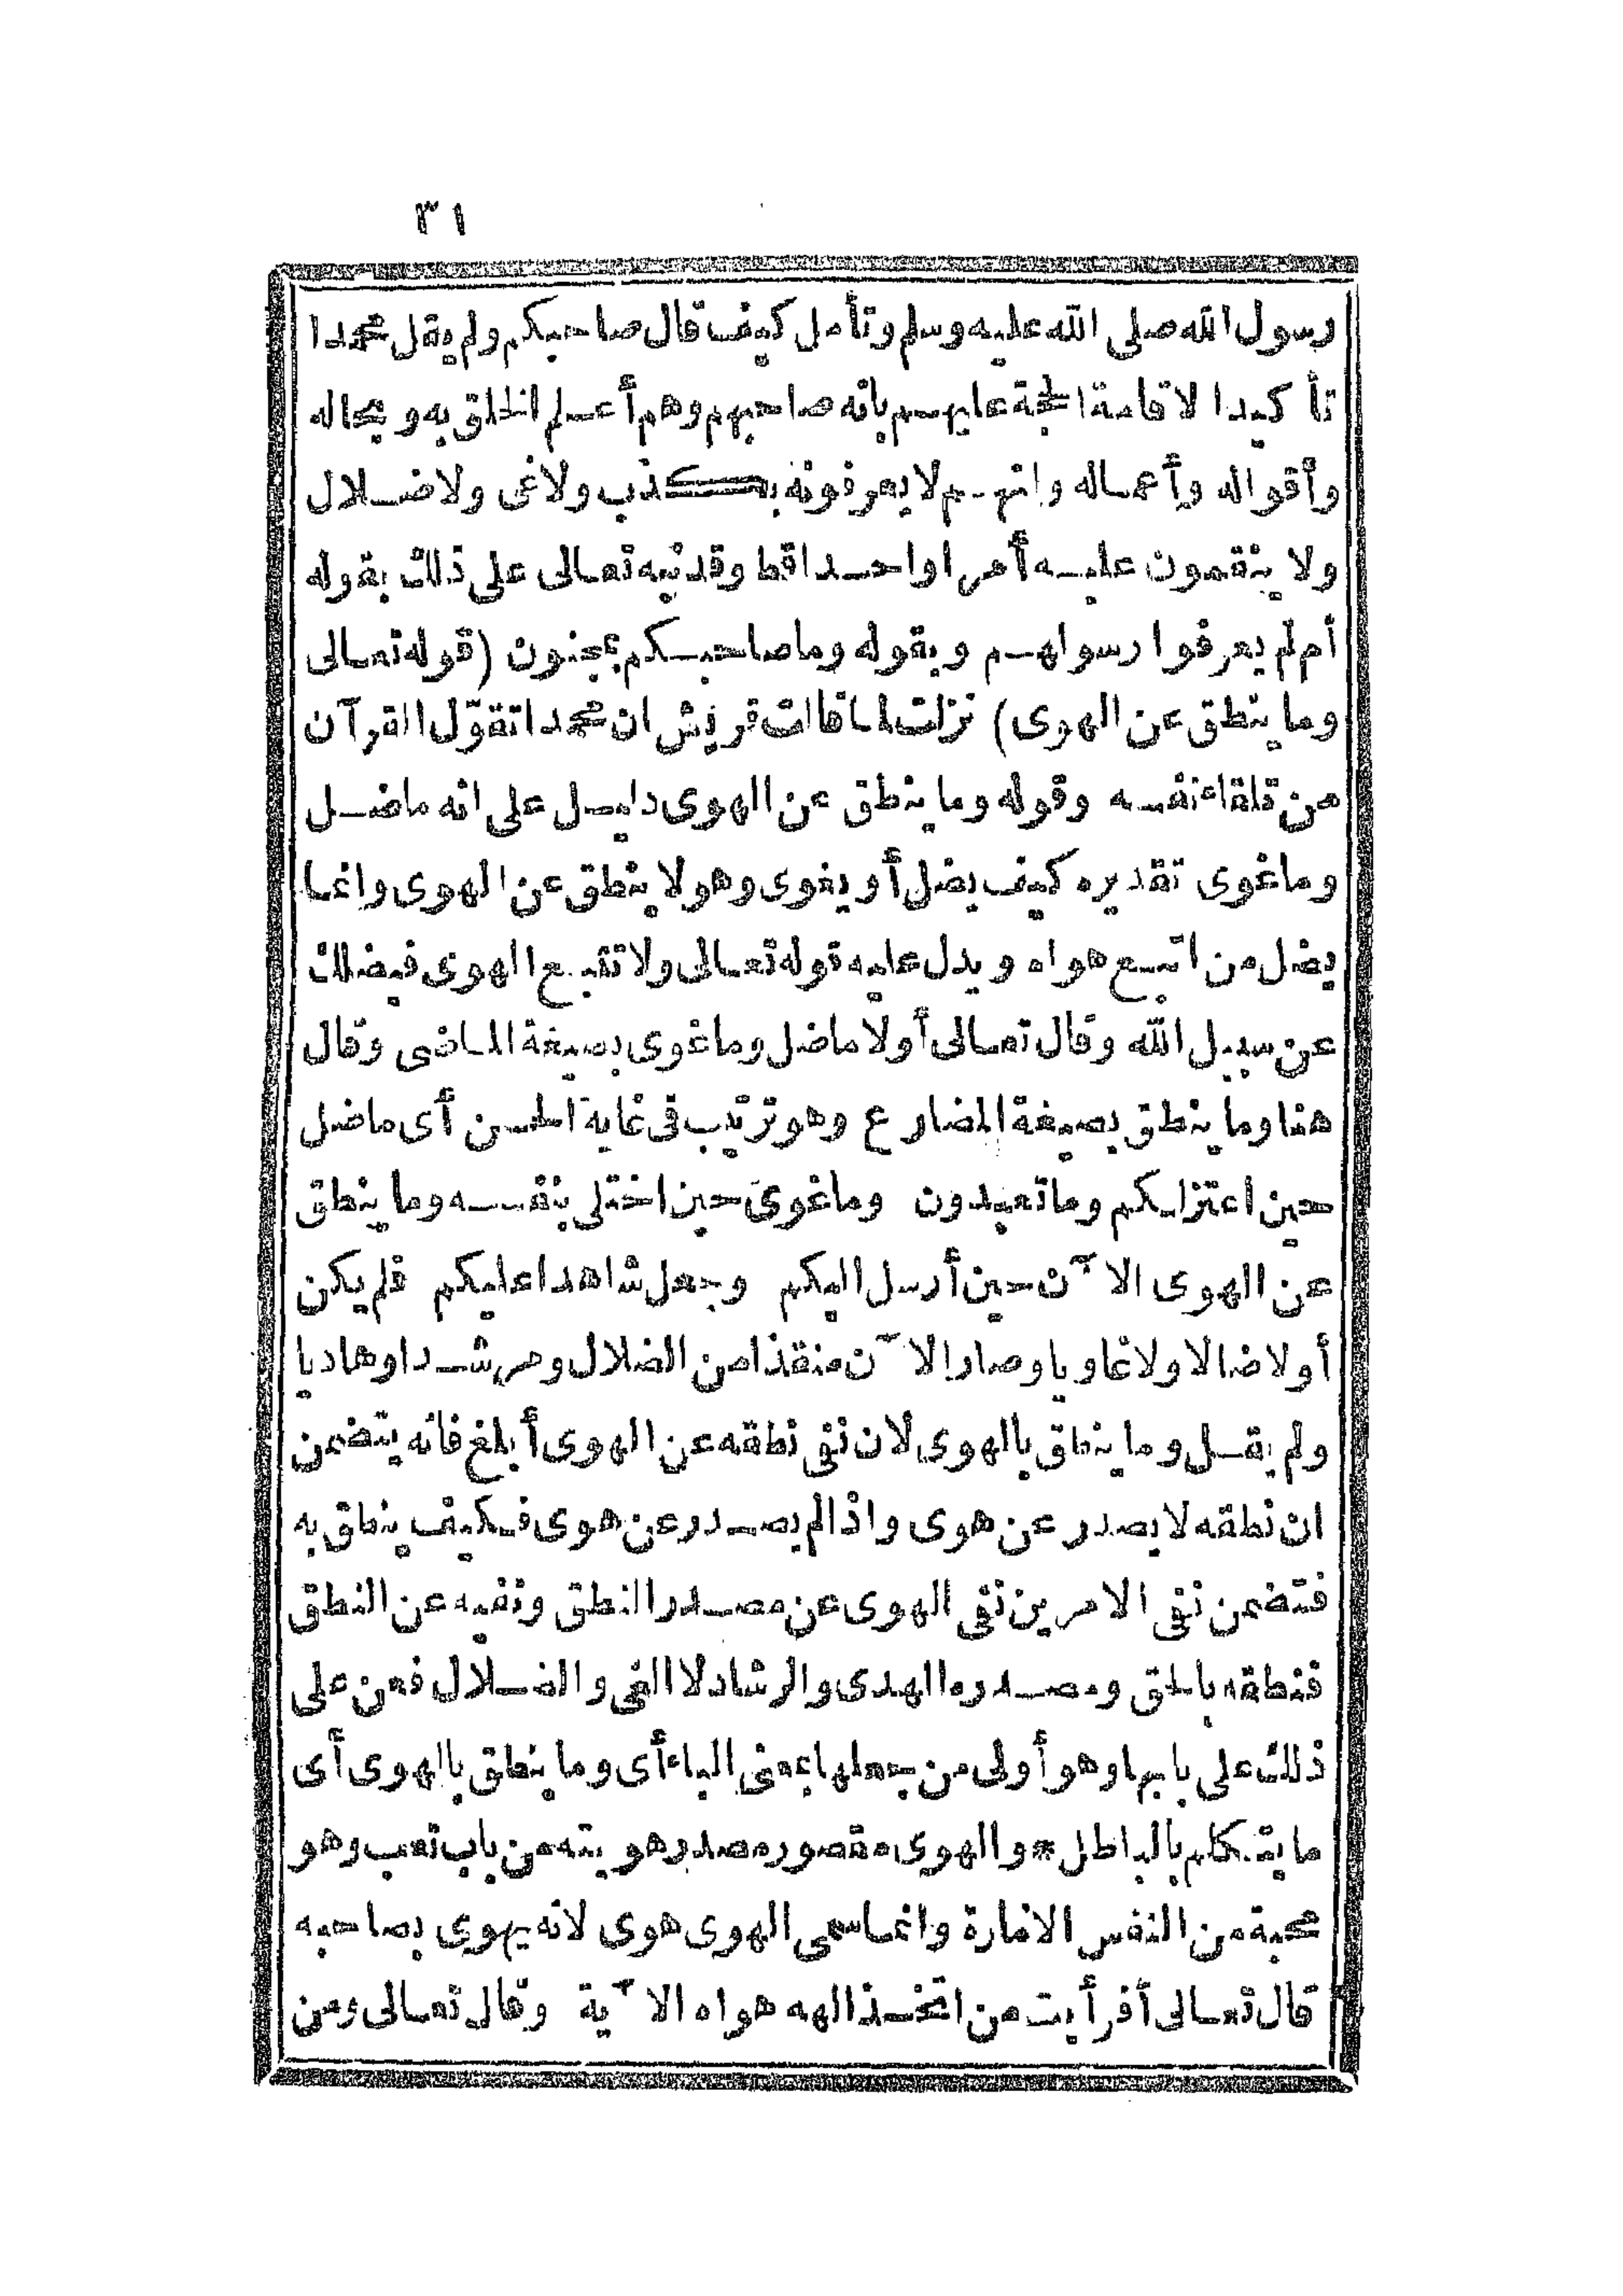 ٣١
رسول الله صلى الله عليه وسلم وتأمل كيف قال صاحبكم ولم يقل محمدا
تأكيدا لاقامة الحجة عليهم بانه صاحبهم وهم أعلم الخلق به وبحاله
وأقواله وأعماله وانهم لا يعرفونه بكذب ولا غى ولا ضلال
ولا ينقمون عليه أمرا واحدا قط وقد نبه تعالى على ذلك بقوله
أم لم يعرفوا رسولهم وبقوله وما صاحبكم بمجنون (قوله تعالى
وما ينطق عن الهوى) نزلت لما قالت قريش ان محمدا تقوّل القرآن
من تلقاء نفسه وقوله وما ينطق عن الهوى دليل على انه ما ضل
وما غوى تقديره كيف يضل أو يغوى وهو لا ينطق عن الهوى وانما
يضل من اتبع هواه ويدل عليه قوله تعالى ولا تتبع الهوى فيضلك
عن سبيل الله وقال تعالى أولا ما ضل وما غوى بصيغة الماضى وقال
هنا وما ينطق بصيغة المضارع وهو ترتيب فى غاية الحسن أى ما ضل
حين اعتزلكم وما تعبدون وما غوى حين اختلى بنفسه وما ينطق
عن الهوى الآن حين أرسل اليكم وجعل شاهدا عليكم فلم يكن
أولا ضالا ولا غاويا وصار الآن منقذا من الضلال ومرشدا وهاديا
ولم يقل وما ينطق بالهوى لان نفى نطقه عن الهوى أبلغ فانه يتضمن
ان نطقه لا يصدر عن هوى واذا لم يصدر عن هوى فكيف ينطق به
فتضمن نفى الامرين نفى الهوى عن مصدر النطق ونفيه عن النطق
فنطقه بالحق ومصدره الهدى والرشاد لا الغى والضلال فعن على
ذلك على بابها وهو أولى من جعلها بمعنى الباء أى وما ينطق بالهوى أى
ما يتكلم بالباطل * والهوى مقصور مصدر هويته من باب تعب وهو
محبة من النفس الامارة وانما سمى الهوى هوى لانه يهوى بصاحبه
قال تعالى أفرأيت من اتخذ الهه هواه الآية وقال تعالى ومن